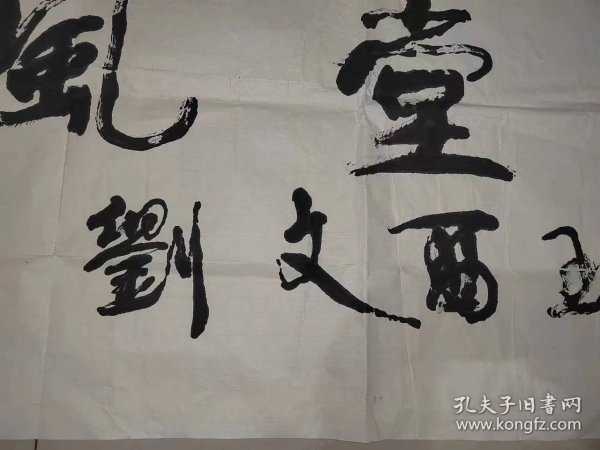 風 堂
劉文西
孔夫子旧書网
www.kongfz.com